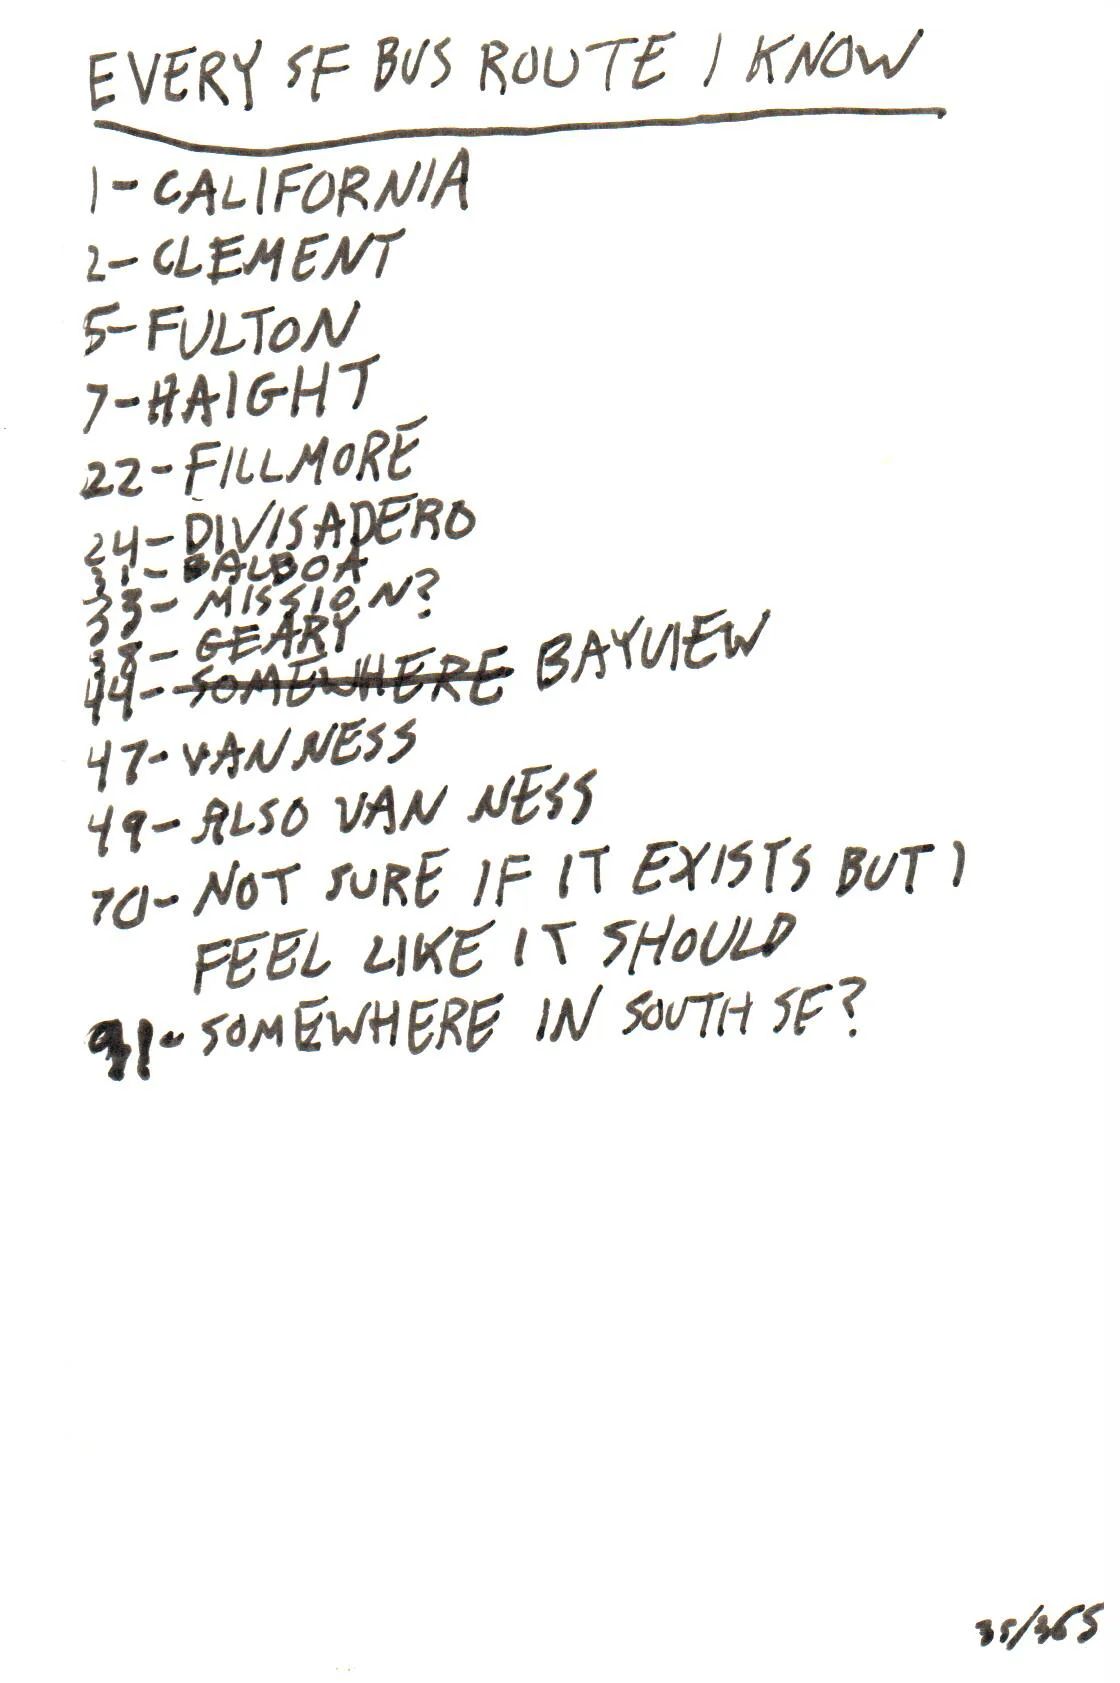 EVERY SF BUS ROUTE I KNOW
1- CALIFORNIA
2- CLEMENT
5- FULTON
7- HAIGHT
22- FILLMORE
24- DIVISADERO
31- BALBOA
33- MISSION?
38- GEARY
44- SOMEWHERE BAYVIEW
47- VAN NESS
49- ALSO VAN NESS
70- NOT SURE IF IT EXISTS BUT I
FEEL LIKE IT SHOULD
91- SOMEWHERE IN SOUTH SF?
35/365